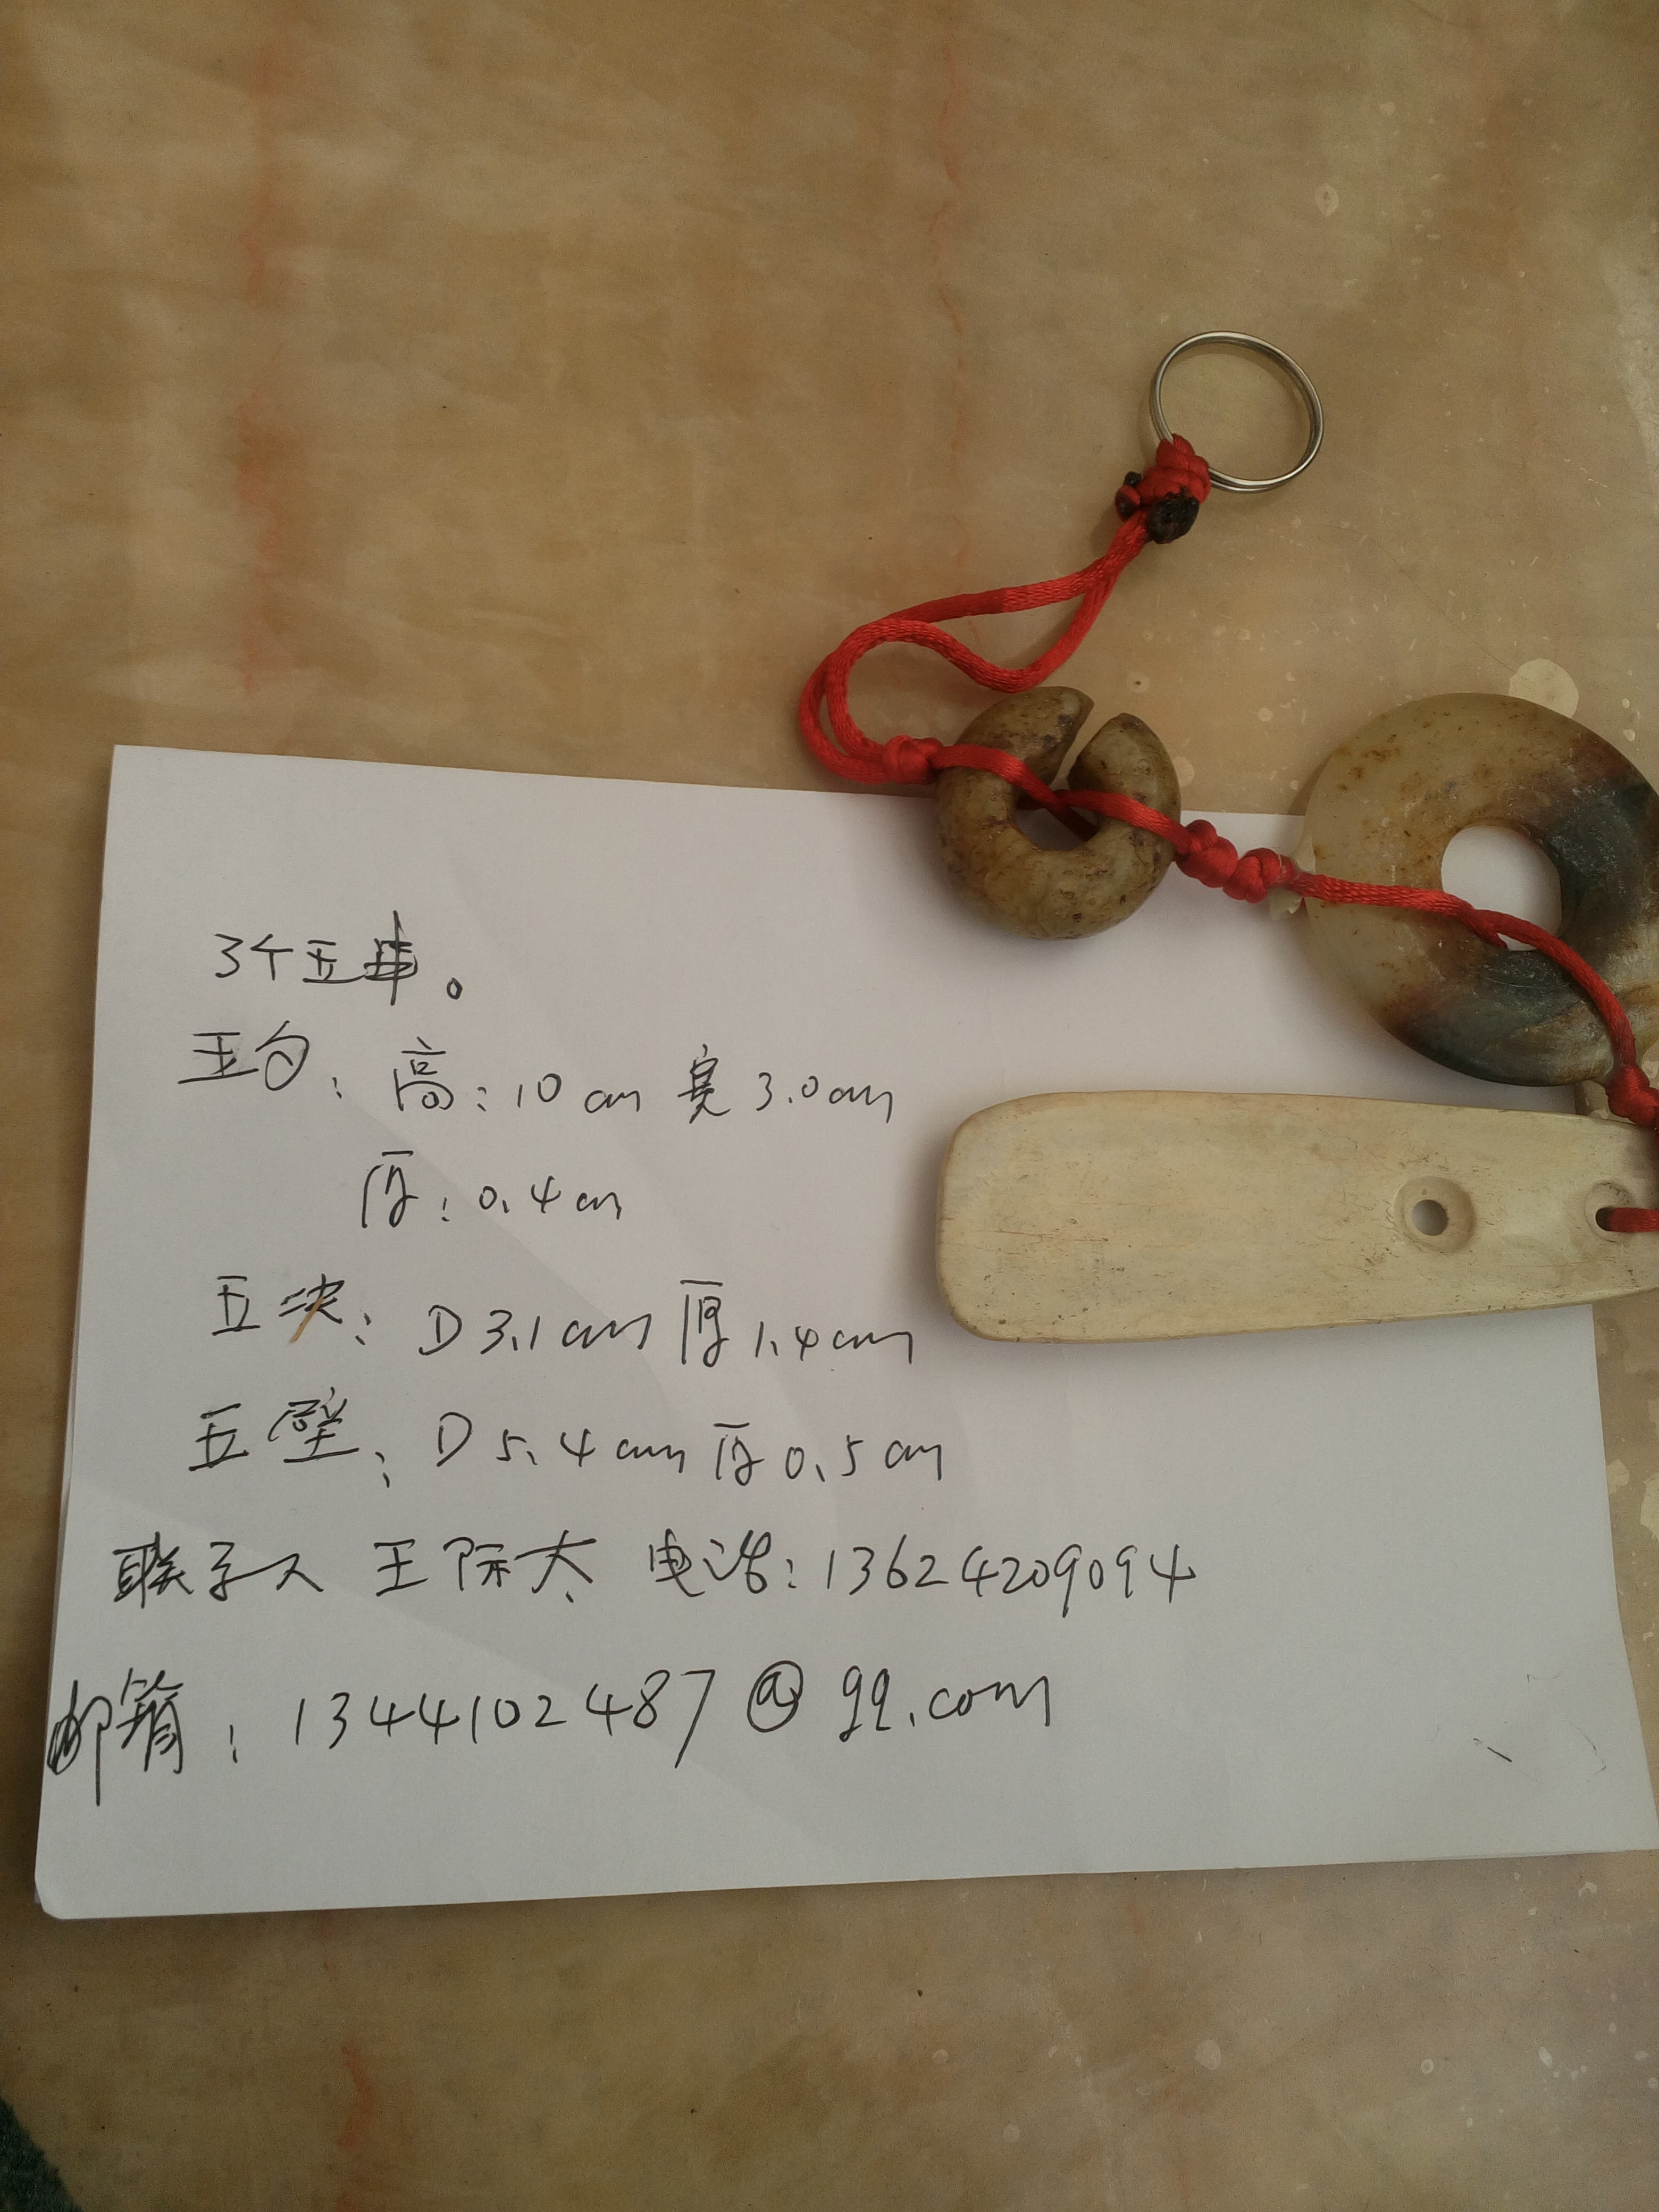 3个玉串。
玉勾：高：10cm 宽3.0cm
厚：0.4cm
玉块：D3.1cm 厚1.4cm
玉璧：D5.4cm 厚0.5cm
联系人 王际太 电话：13624209094
邮箱：1344102487@qq.com